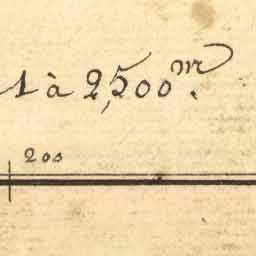 1 à 2,500.me
200